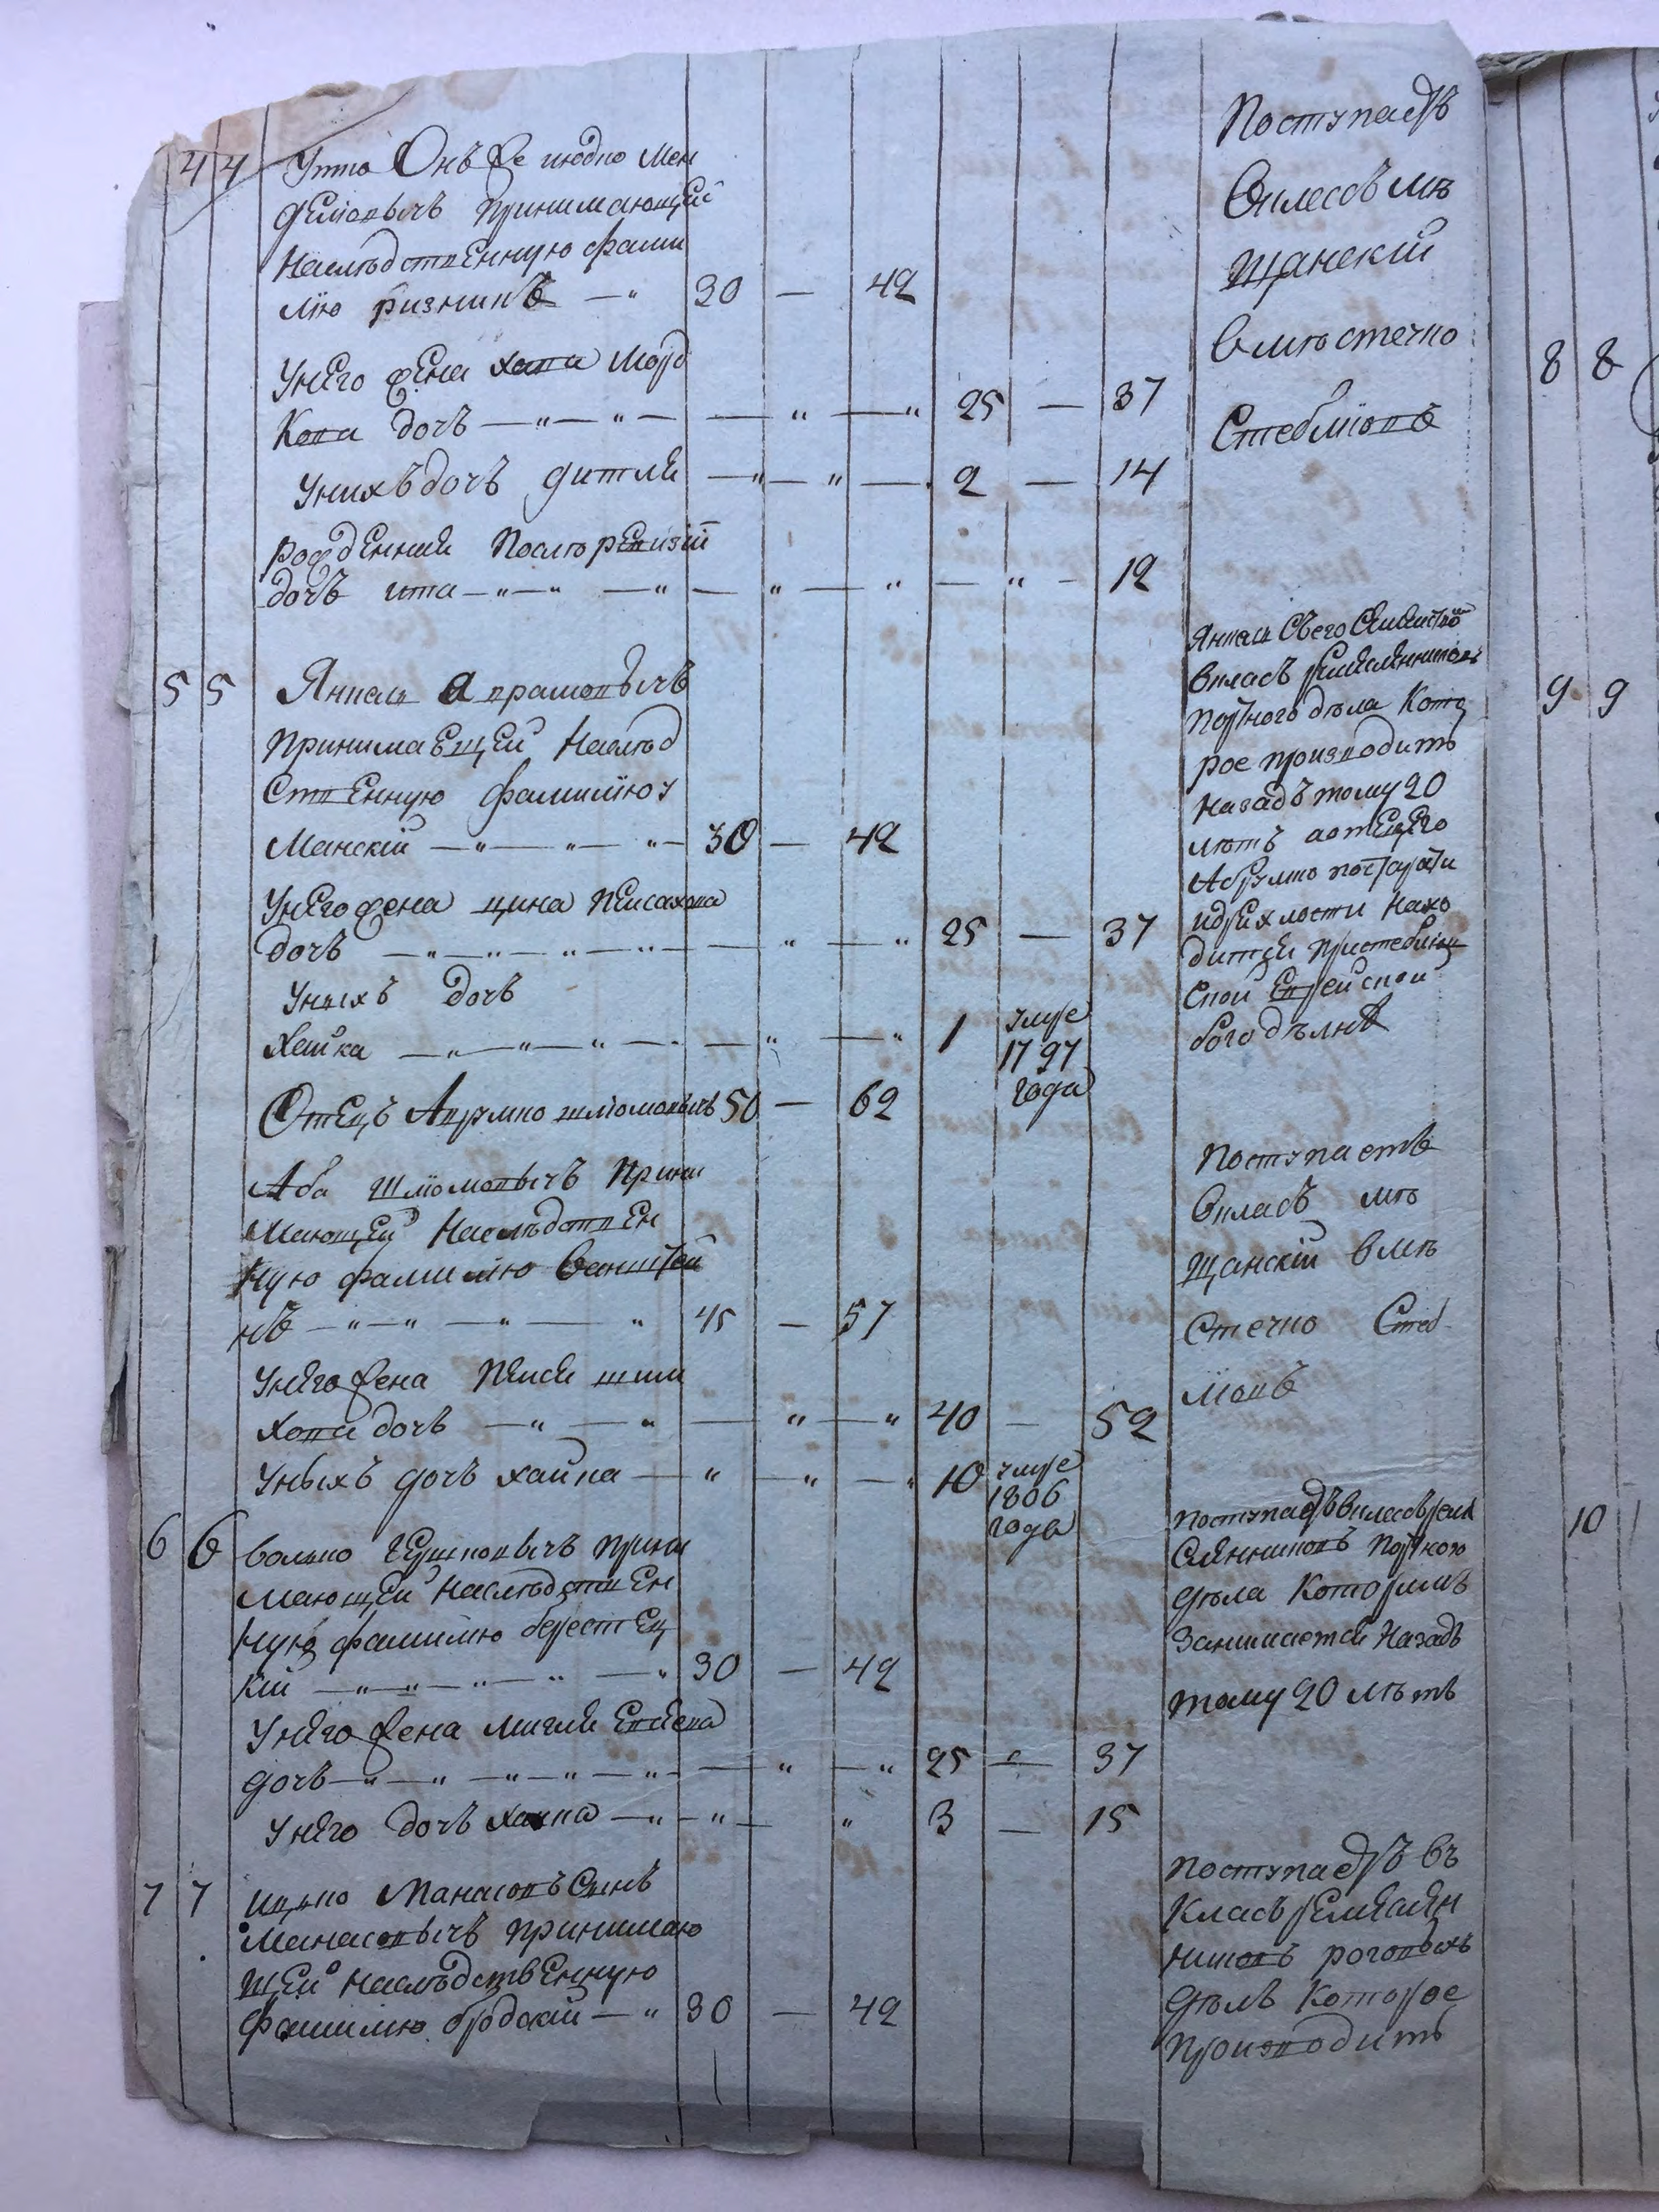 4 4 Умто Онъ же июдко Мен
делiовычъ принимающей
Наслѣдственную фами
лiю ризникъ — 30 — 42
У него жена хана Морд
Кова дочъ — 25 — 37
У нихъ дочъ дитля — 2 — 14
рожденная После ревизiй
дочъ ита — 12
Поступаетъ
Вкласъ мѣ
Щанскiй
в мѣстечко
Стеблiовъ
5 5 Янкель Аврамовычъ
Принимаещей Наслѣд
Ственную фамилiю у
Манскiй — 30 — 42
У него жена цина Пейсахова
дочъ — 25 — 37
У ныхъ дочъ
Хайка — 1 умре
1797
года
Отецъ Аврумко шлiомовычъ 50 — 62
Янкель Съ его Семейством
Вкласъ ремеслянниковъ
Портного дѣла Кото
рое производитъ
Назадъ тому 20
лѣтъ а отец его
Абрумко по старости
и дряхлости Нахо
дится при стеблiов
Ской Еврейской
богодѣлнѣ
Аба Шлiомовычъ Прини
Мающей Наслѣдствен
Ную фамилiю Ванштей
нъ — 45 — 57
У него жена Пейся шми
Хова дочъ — 40 — 52
У ныхъ дочъ хайка — 10 умре
1806
года
Поступаетъ
Вкласъ мѣ
Щанскiй в мѣ
Стечко Стеб
лiовъ
6 6 Волько Гершковычъ прини
Мающей Наслѣдствен
Ную фамилiю берестец
Кiй — 30 — 42
У него жена Мигля Евсеева
дочъ — 25 — 37
У него дочъ Ханна — 3 — 15
Поступаетъ Вкласъ реме
Слянниковъ Портного
дѣла Которымъ
Занимается Назадъ
тому 20 лѣтъ
7 7 Ицко Манасовъ Сынъ
Манасовычъ принимаю
щей Наслѣдственную
Фамилiю бродскiй — 30 — 42
Поступаетъ въ
Класъ ремеслян
никовъ роговыхъ
дѣлъ Которое
Производитъ
8 8
9 9
10